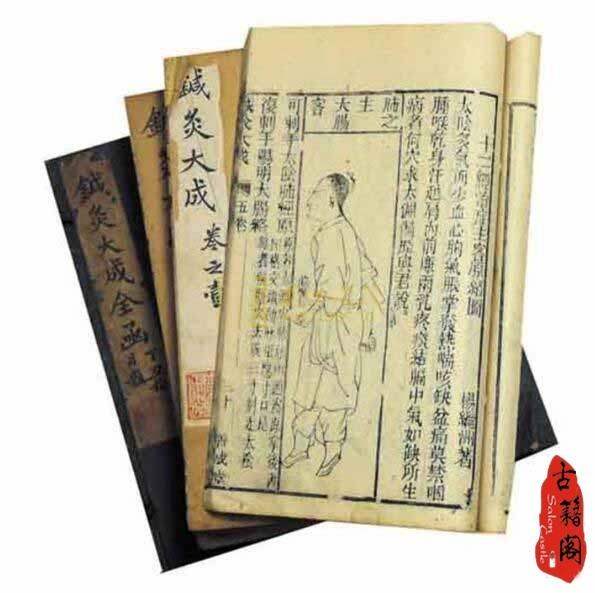 十二經治症主客原絡圖 楊繼洲著
太陰多氣而少血心胸氣脹掌發熱喘咳缺盆痛莫禁咽
腫喉乾身汗越肩內前廉兩乳疼痰結膈中氣如缺所生
病者何穴求太淵偏歷與君說
肺之主大腸客
可刺手太陰肺經原
復刺手陽明大腸絡
鍼灸大成 五卷 三十 善成堂
鍼灸大成 卷之壹
鍼灸大成全函
古籍阁
Salon Castle